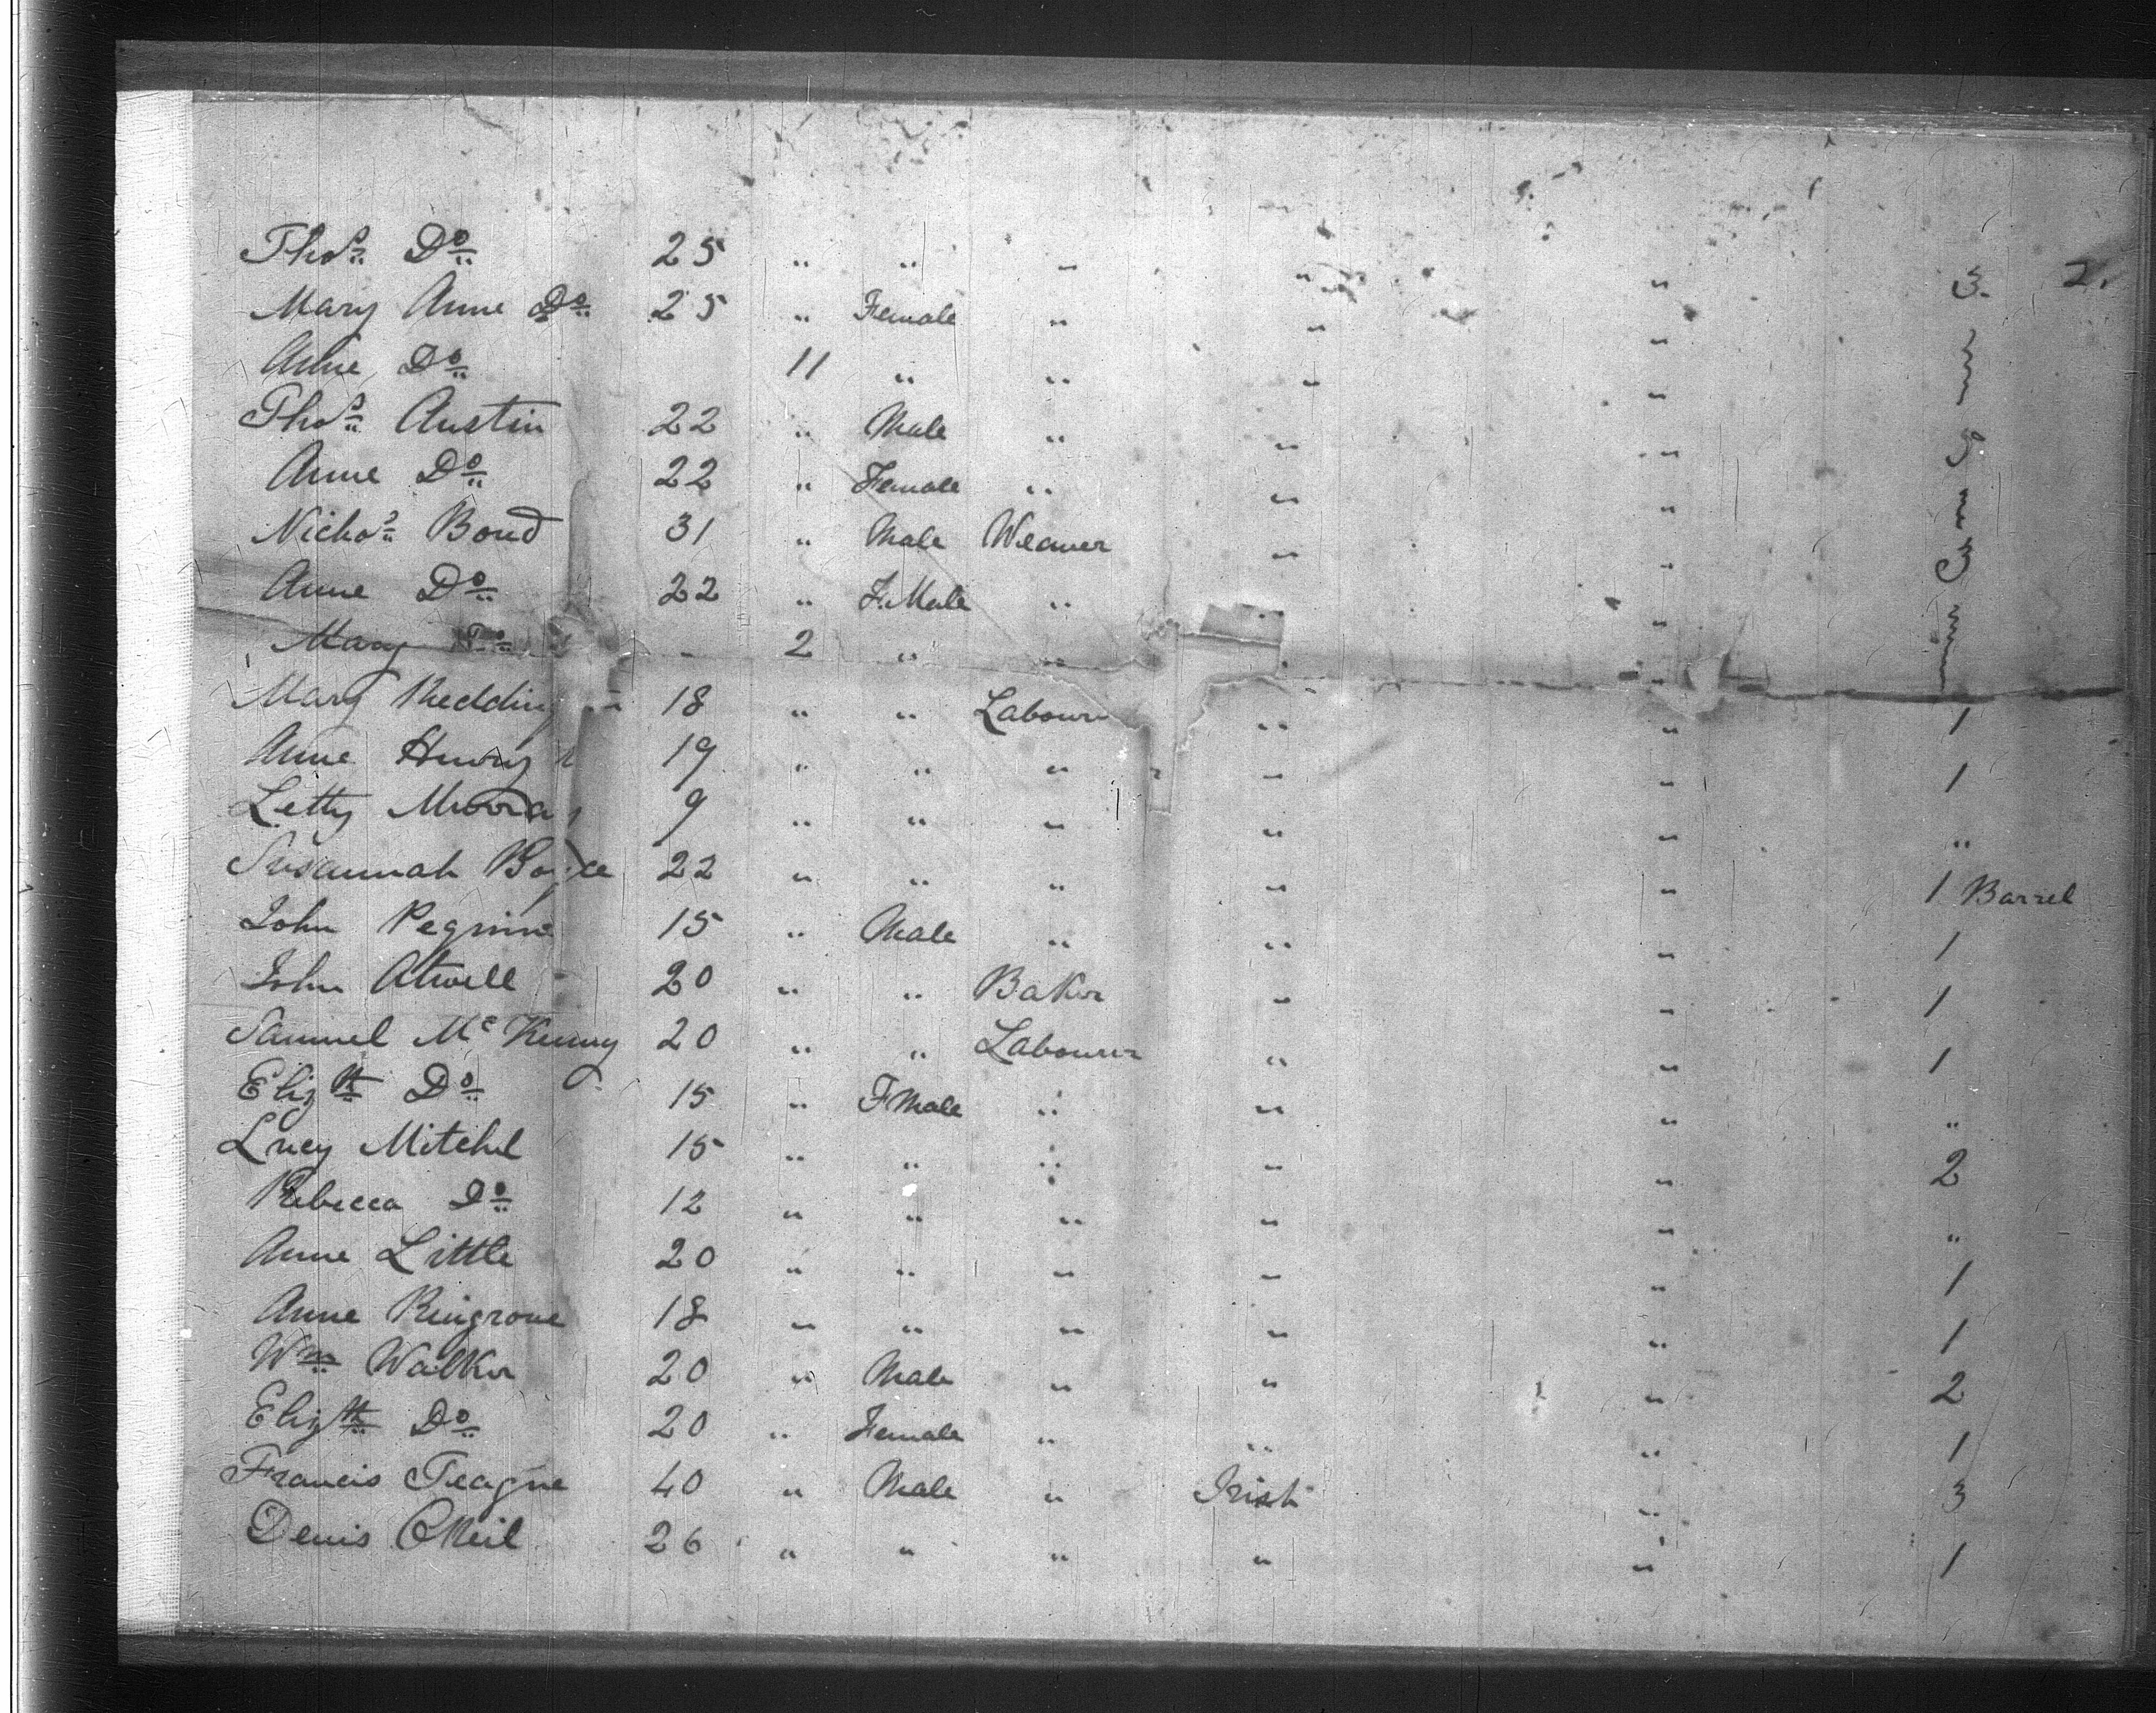 Thos. Do. 25 " " " " " 3. 2.
Mary Anne Do. 25 " Female " " "
Anne Do. 11 " " " "
Thos. Austin 22 " Male " " "
Anne Do. 22 " Female " " "
Nichos. Bond 31 " Male Weaver " "
Anne Do. 22 " F.Male " " "
Mary Do. - 2 " " " "
Mary Redding 18 " " Labour " " 1
Anne Henry 19 " " " " " 1
Letty Murray 9 " " " " " "
Susannah Boyce 22 " " " " " 1 Barrel
John 15 " Male " " " 1
John Atwell 20 " " Baker " " 1
Samuel McKenny 20 " " Labourer " " 1
Elizth Do. 15 " FMale " " " "
Lucy Mitchel 15 " " " " " 2
Rebecca Do. 12 " " " " " "
Anne Little 20 " " " " " 1
Anne Ringrove 18 " " " " " 1
Wm Walker 20 " Male " " " 2
Elizth Do. 20 " Female " " " 1
Francis Teague 40 " Male " Irish " 3
Denis ONeil 26 " " " " " 1